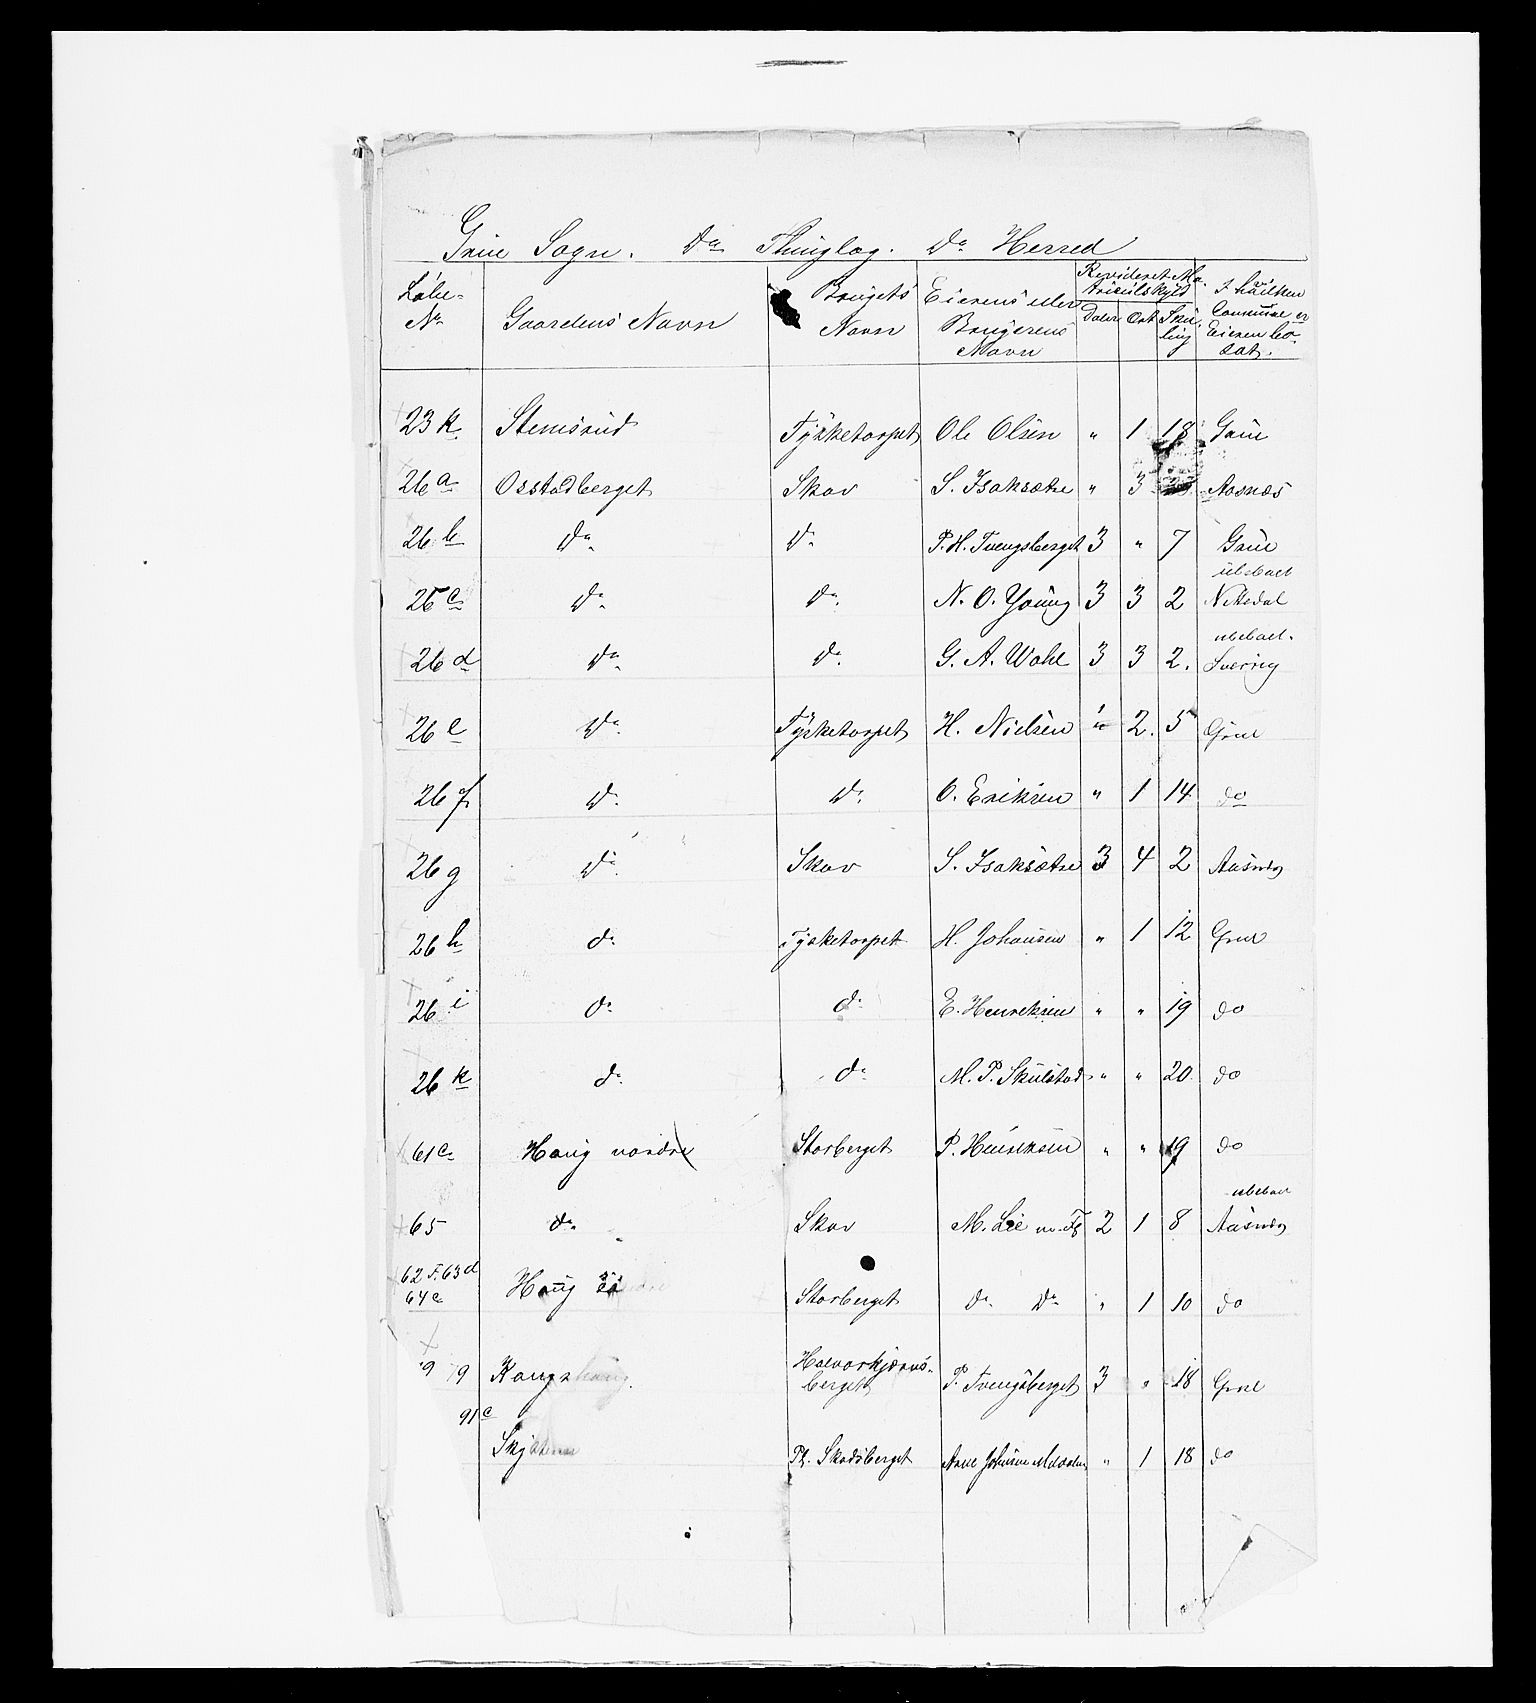 Grue Sogn. Do Thinglag. Do Herred
Løbe-No Gaardens Navn Brugets Navn Eierens eller Brugerens Navn Revideret Matriculskyld Daler Ort Skilling I hvilken Commune er Eieren bosat.
23 k Stemsrud Tysketorpet Ole Olsen " 1 18 Grue
26 a Osstadberget Skov S. Isaksætre " 3 Aasnæs
26 b Do Do P. H. Tvengsberget 3 " 7 Grue
26 c Do Do N. O. Young 3 3 2 ubeboet Nittedal
26 d Do Do G. A. Wahl 3 3 2. ubeboet. Sverrig
26 e Do Tysketorpet H. Nielsen " 2. 5 Grue
26 f Do Do O. Eriksen " 1 14 do
26 g Do Skov S. Isaksætre 3 4 2 Aasnæs
26 h do Tysketorpet H. Johansen " 1 12 Grue
26 i do do E. Henriksen " " 19 do
26 k do do M. P. Skulstad " " 20 do
61 c Haug nordre Storberget P. Henriksen " " 19 do
65 do Skov M. Lie 2 1 8 ubeboet Aasnæs
62 F. 63 d 64 c Haug Storberget do Do " 1 10 do
9 Kongshaug Halvorkjærnsberget P. Tvengsberget 3 " 18 Grue
91 c Pl. Skadsberget Arne Johnsen " 1 18 do